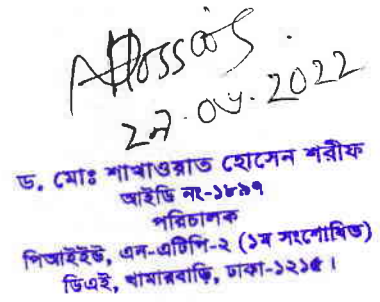 AHossain
27.06.2022
ড. মোঃ শাখাওয়াত হোসেন শরীফ
আইডি নং-১৮৯৭
পরিচালক
পিআইইউ, এন-এটিপি-২ (১ম সংশোধিত)
ডিএই, খামারবাড়ি, ঢাকা-১২১৫।